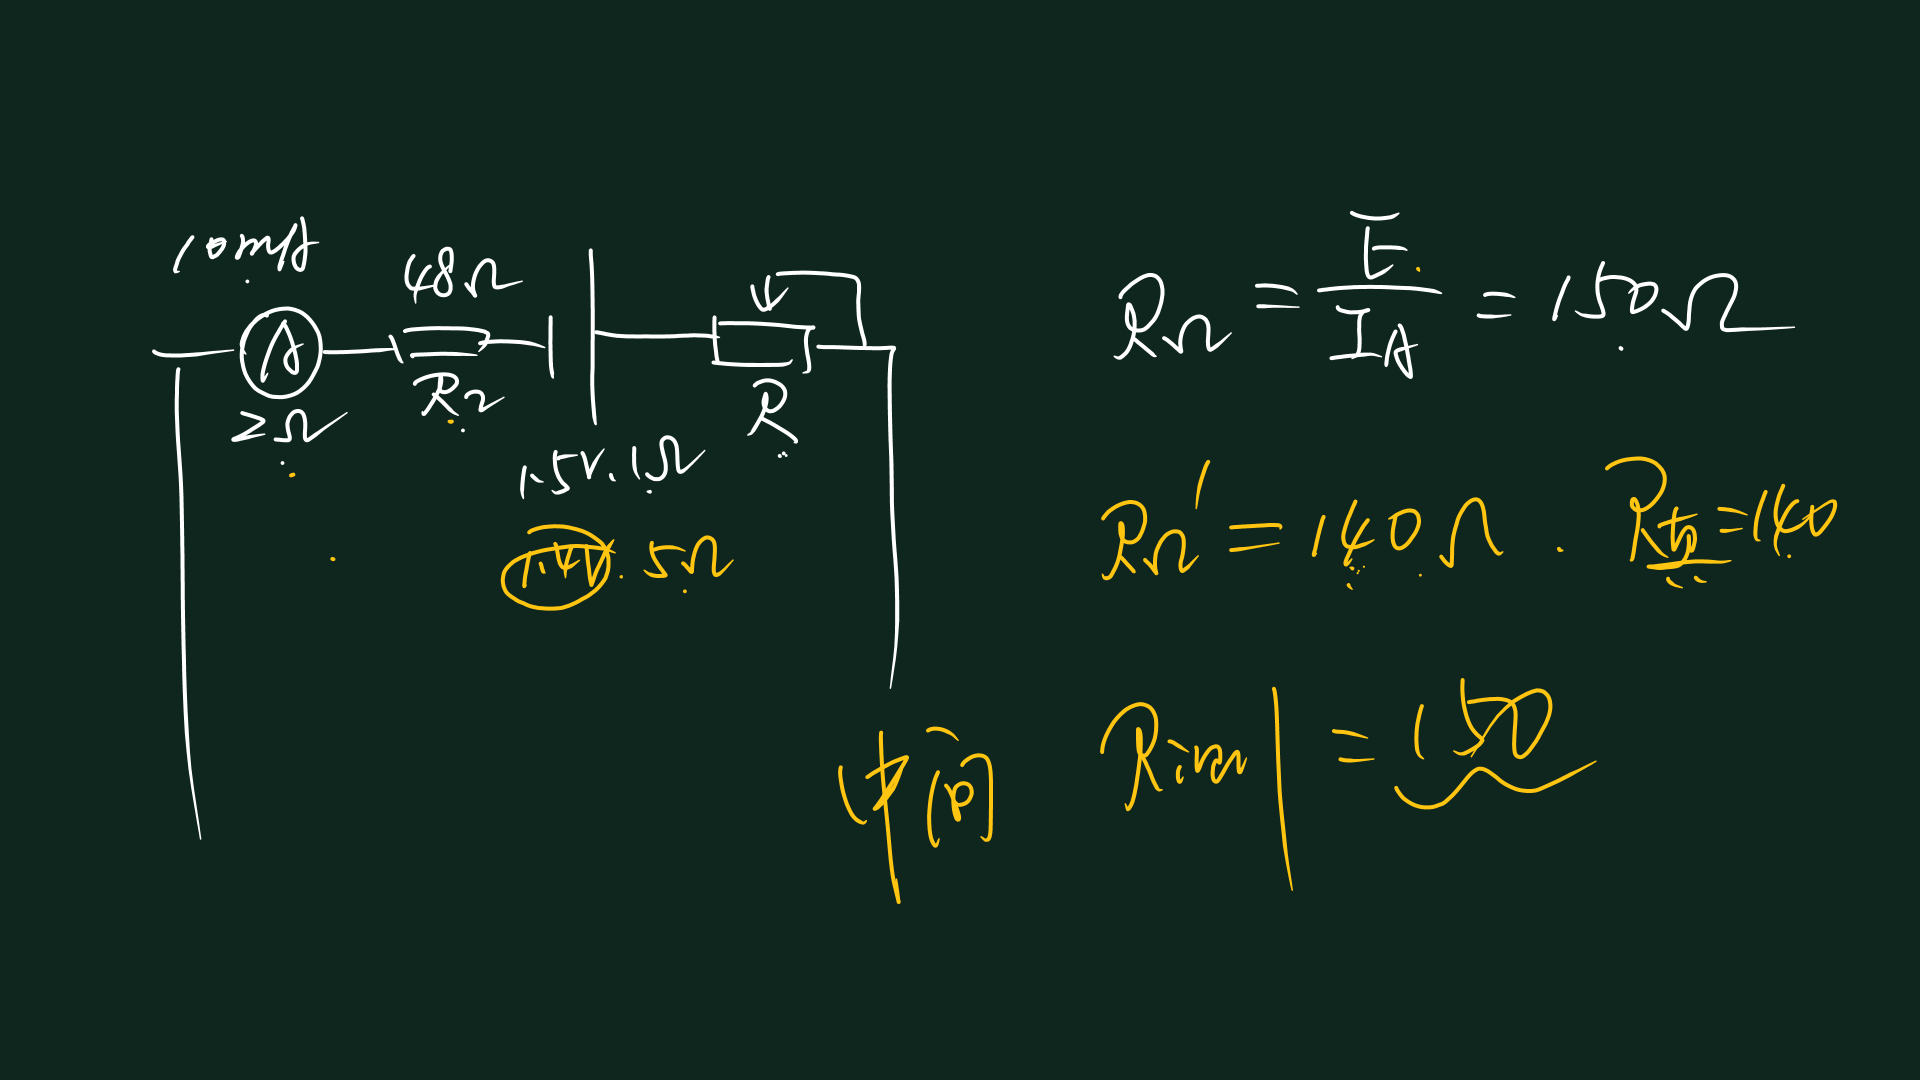 10mA
48Ω
A
2Ω
R2
R
1.5V. 1Ω
1.4V. 5Ω
RΩ = E/IA = 150Ω
RΩ' = 140Ω . R = 140
中间
= 150